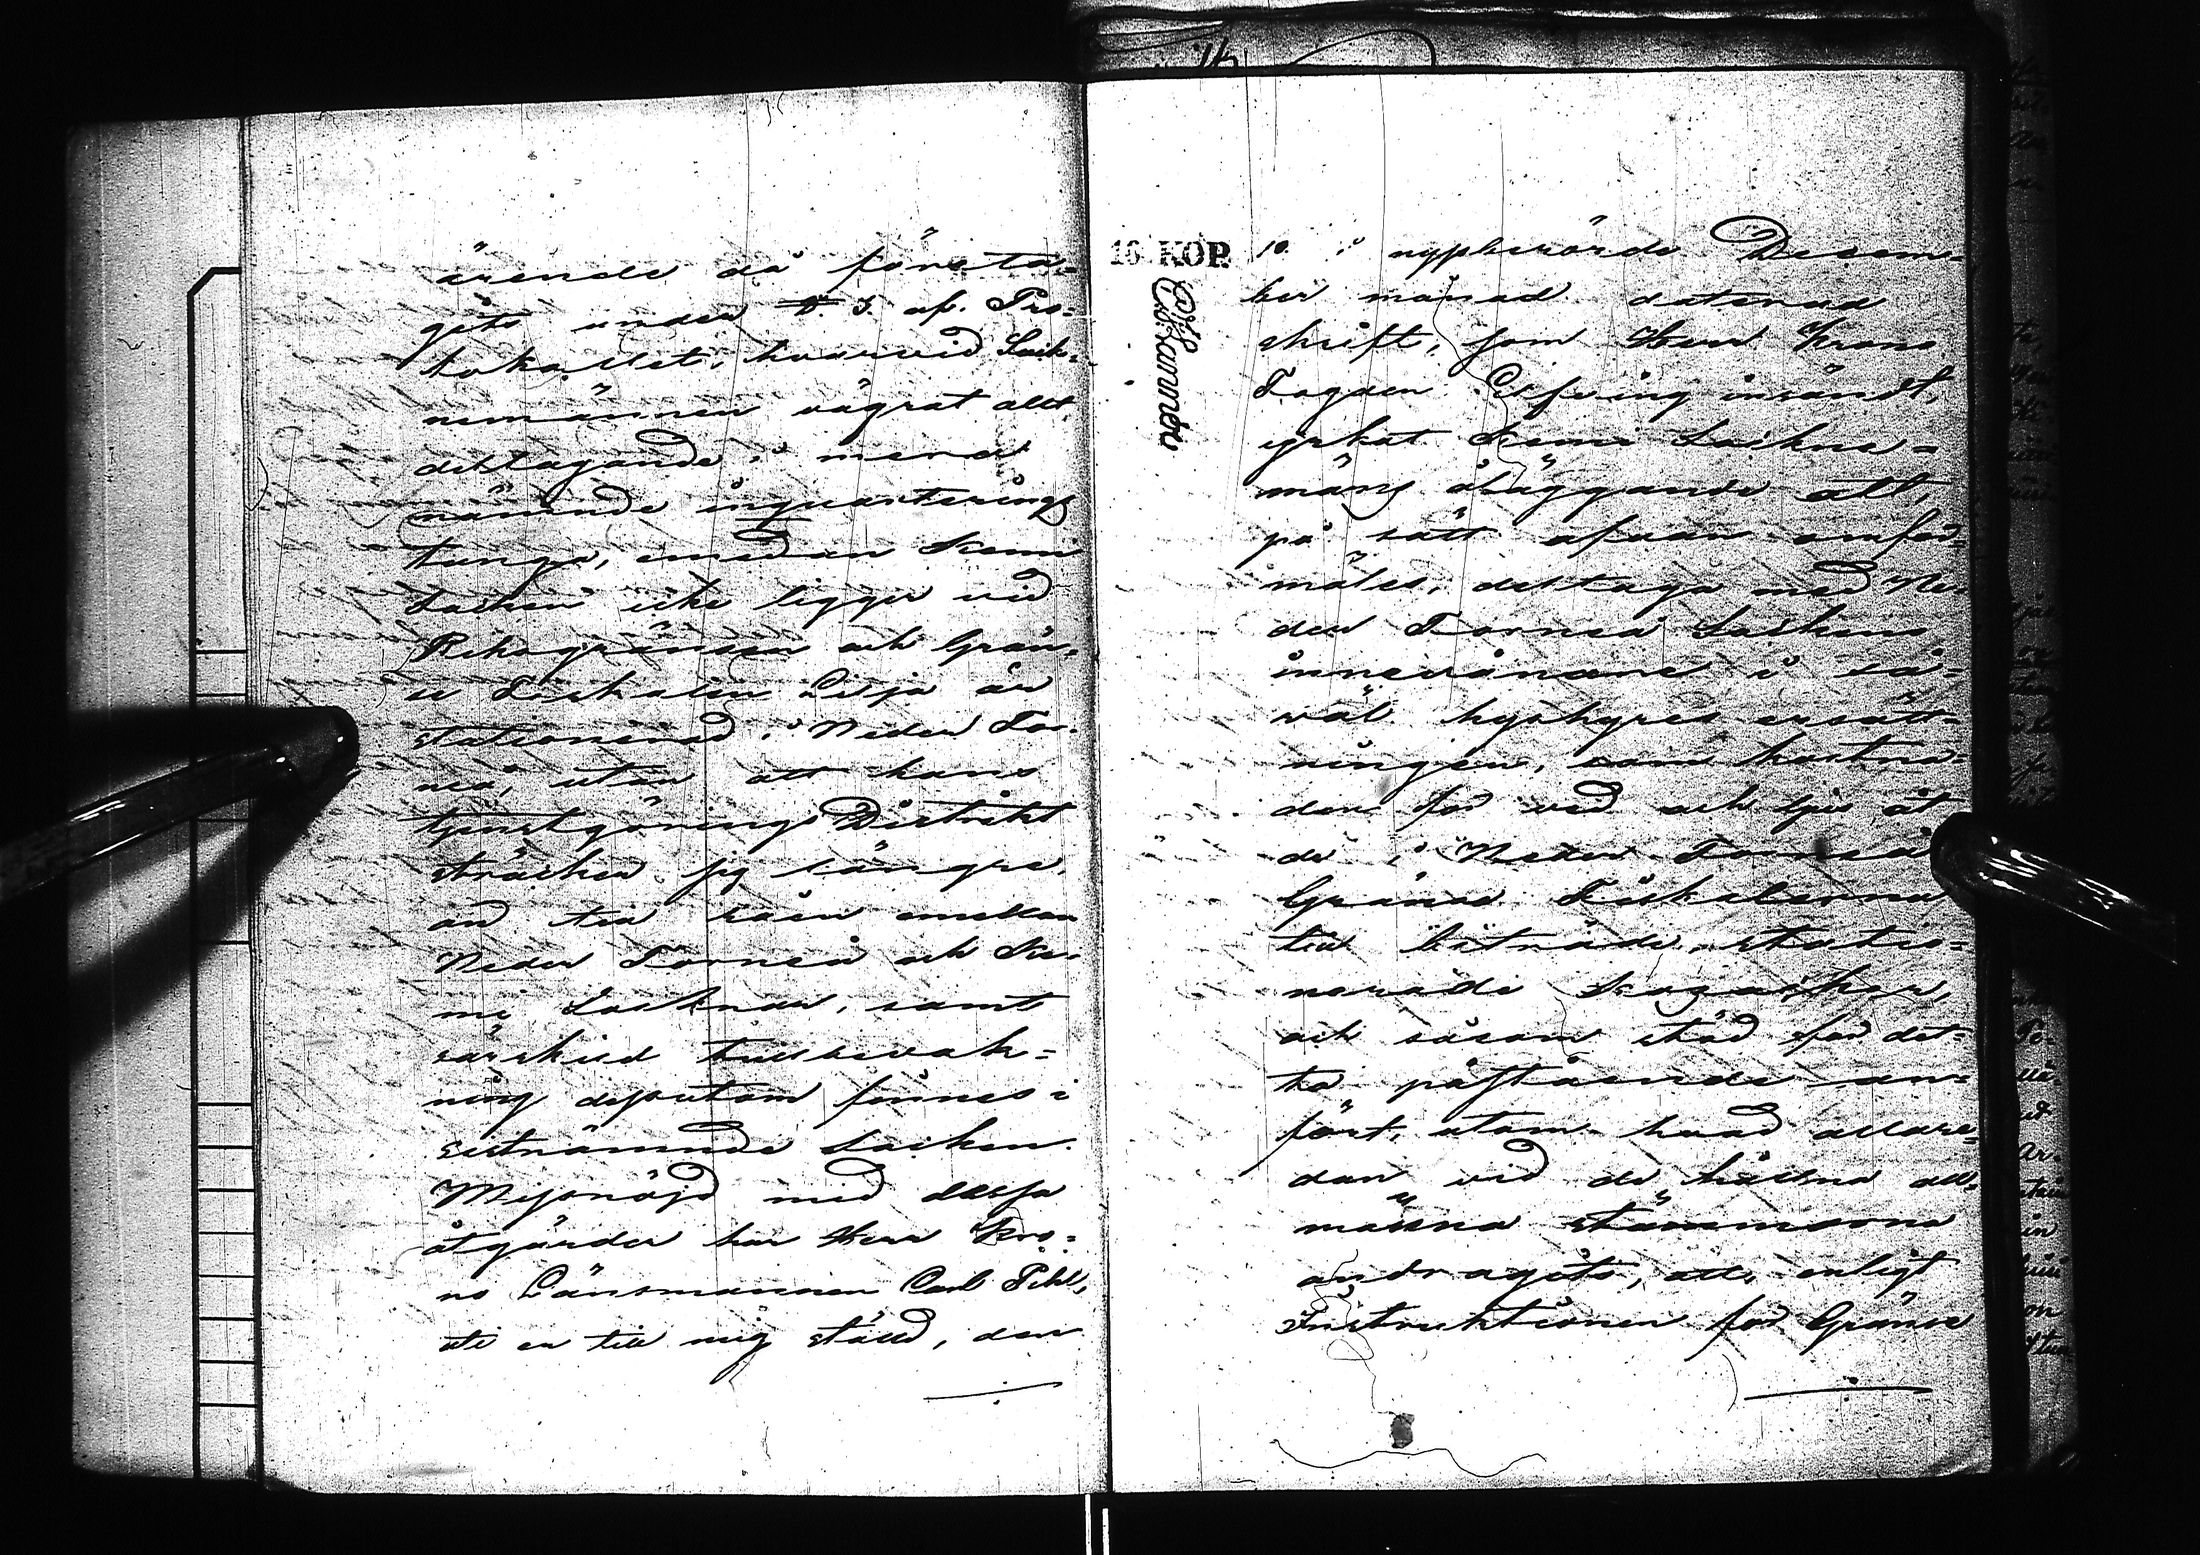 ärende då företa-
gits under §. 3. af. Pro-
tokollet, hvarvid Sock-
nemännen vägrat allt
deltagande i mera
nämnde inquarterings
tunga, emedan Kemi
Socken icke ligger vid
Riksgränsen och Grän-
se Fiskalen Lilja är
stationerad i Neder Tor-
neå, utan att hans
tjenstgörings Distrikt
sträcker sig längre,
än till rån emellan
Neder Torneå och Ke-
mi Socknar, samt
särskild tullbevak-
ning dessutom finnes i
sistnämnde Socken.
Missnöjd med dessa
åtgärder har Herr Kro-
no Länsmannen Carl Pihl,
uti en till mig ställd, den
16 KOP.
10. i nyssberörde Decem-
ber månad daterad
skrift, som Herr Krono
Fogden Elfving insändt,
yrkat Kemi Sockne-
mäns åläggande att,
på sätt ofvan omför-
mäles, deltaga med Ne-
der Torneå Sockens
innevånare i så-
väl hyshyres ersätt-
ningen, som kostna-
den för ved och ljus åt
de i Neder Torneå
Gränse Fiskalerna
till biträde statio-
nerade Kosacker,
och såsom stöd för det-
ta påstående an-
fört, utom hvad allare-
dan vid de hållna all-
männa stämmorna
andragits, att enligt
Instruktionen för Gränse